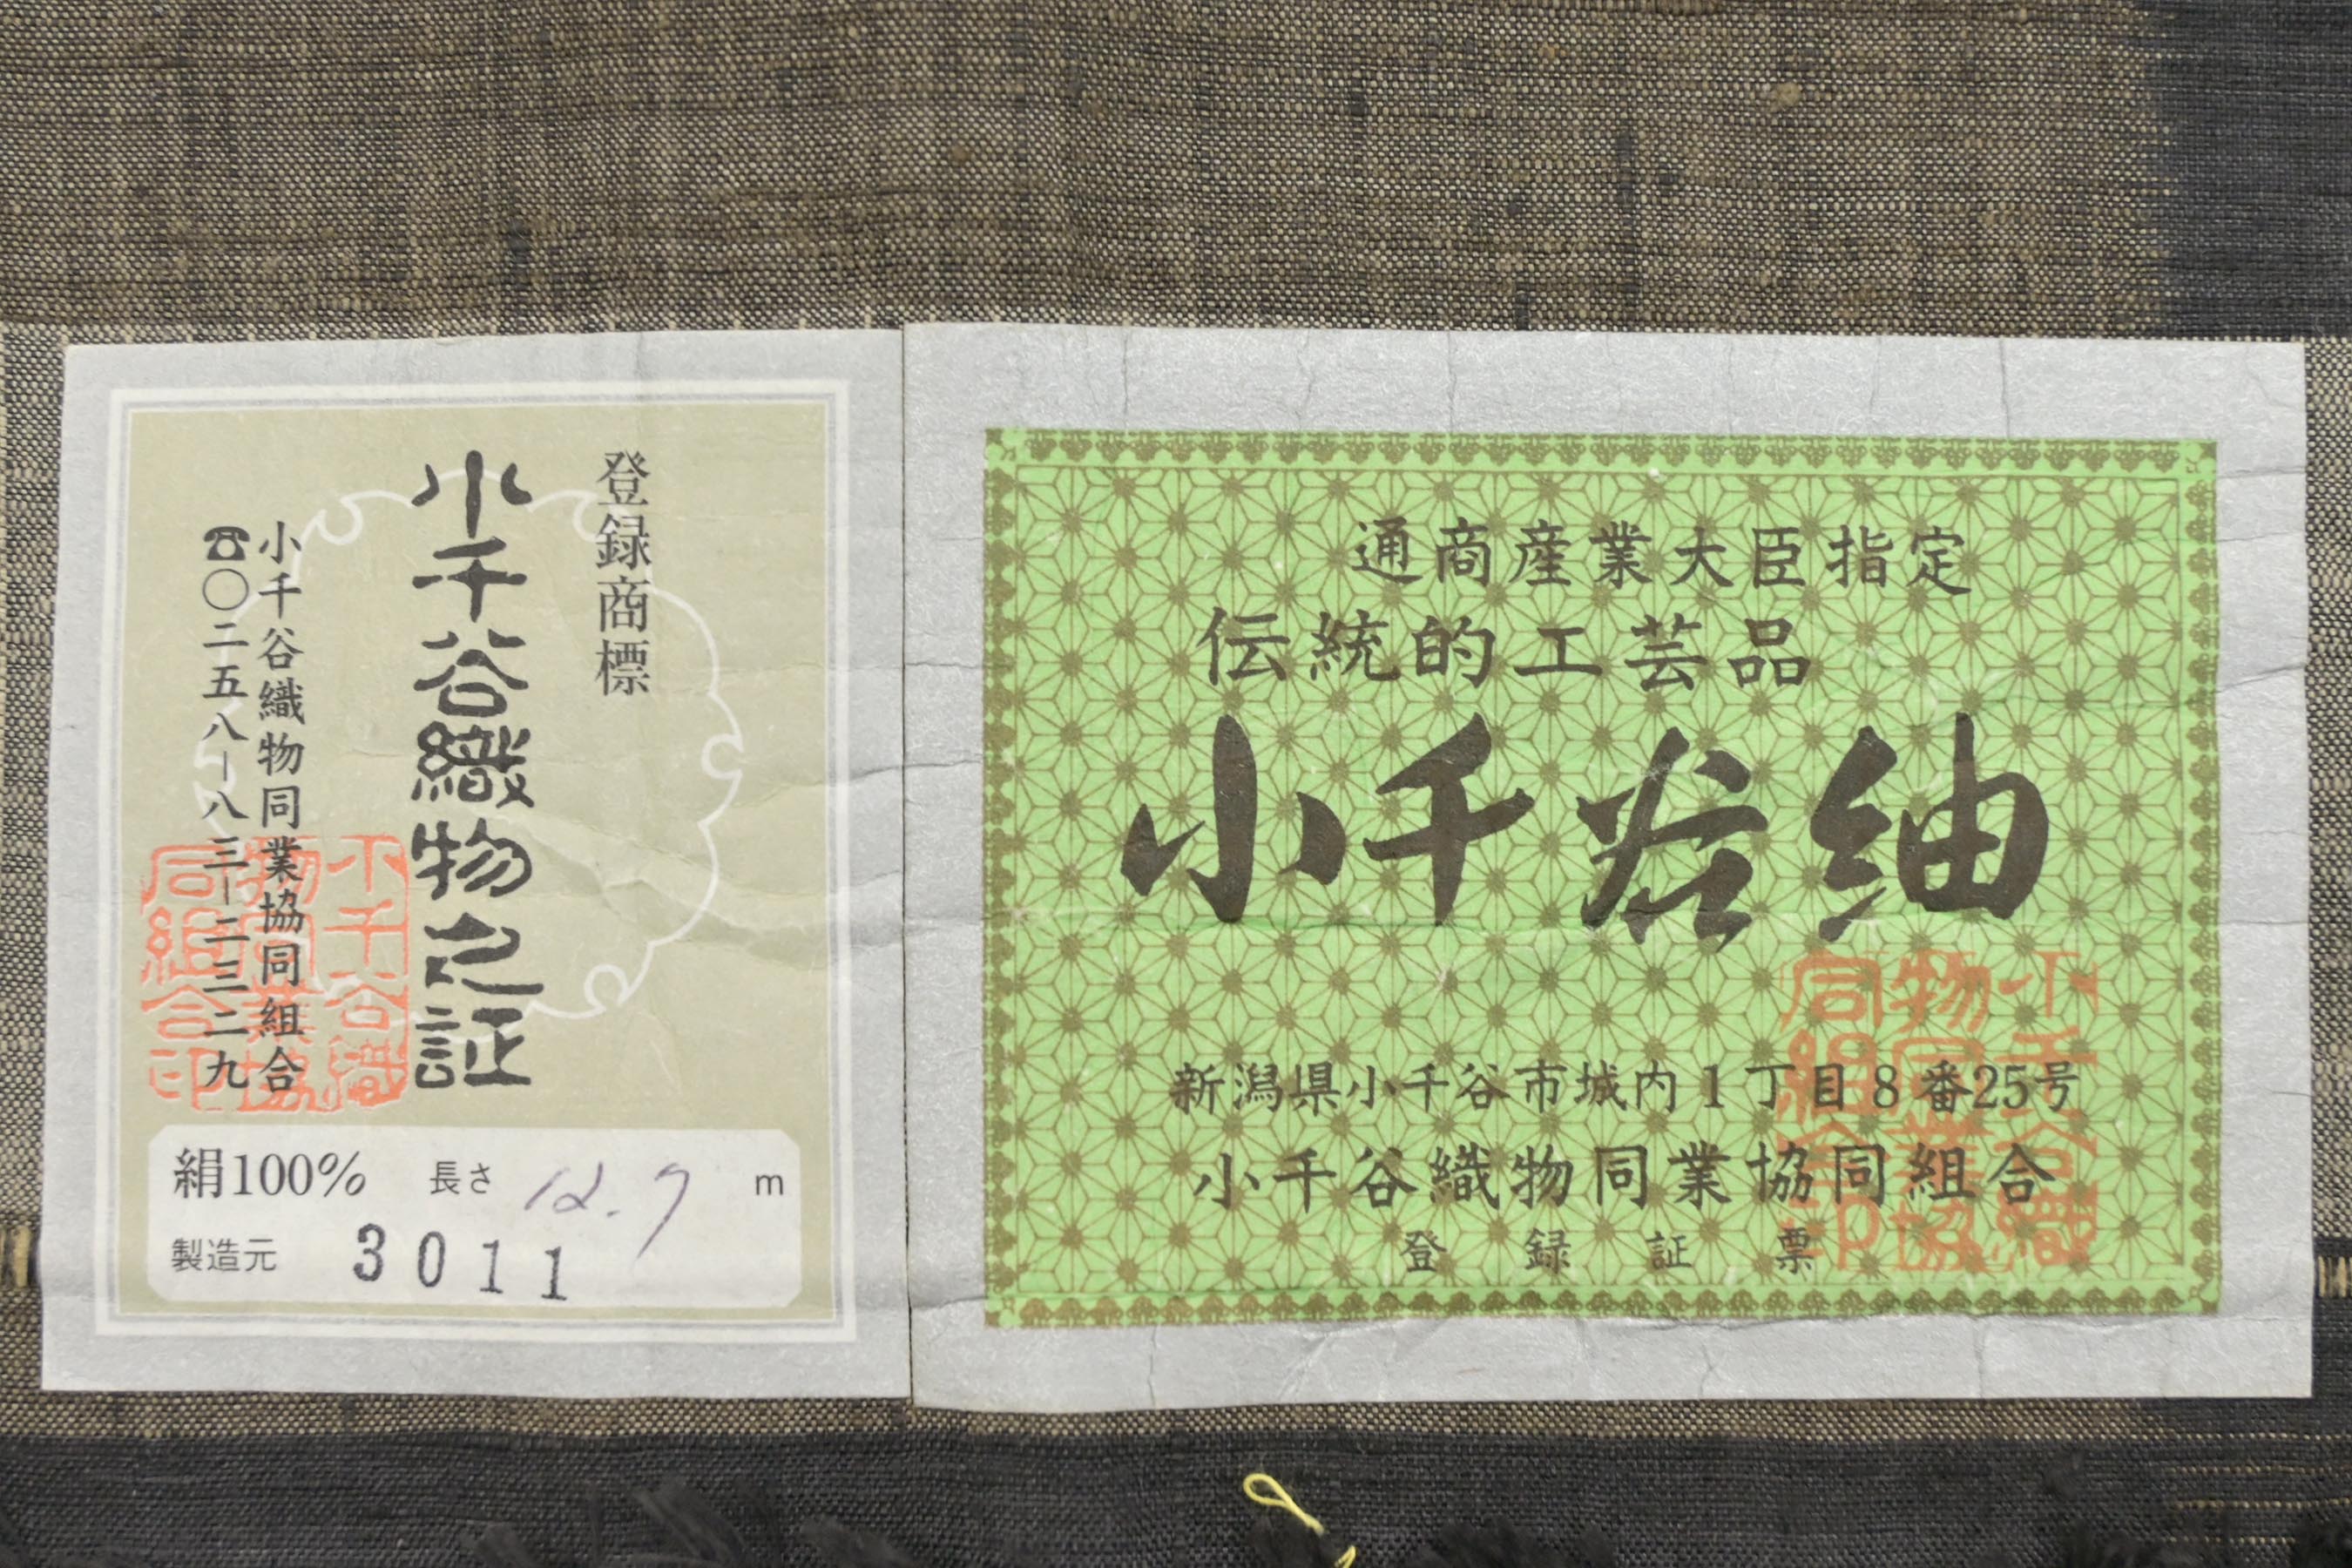 登録商標
小千谷織物之証
小千谷織物同業協同組合
☎〇二五八-八三-二三二九
小千谷織
物同業協
同組合印
絹100% 長さ 12.7 m
製造元 3011
通商産業大臣指定
伝統的工芸品
小千谷紬
新潟県小千谷市城内1丁目8番25号
小千谷織物同業協同組合
登録証票
小千谷織
物同業協
同組合印